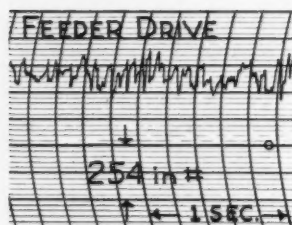 FEEDER DRIVE
254 in #
1 SEC.